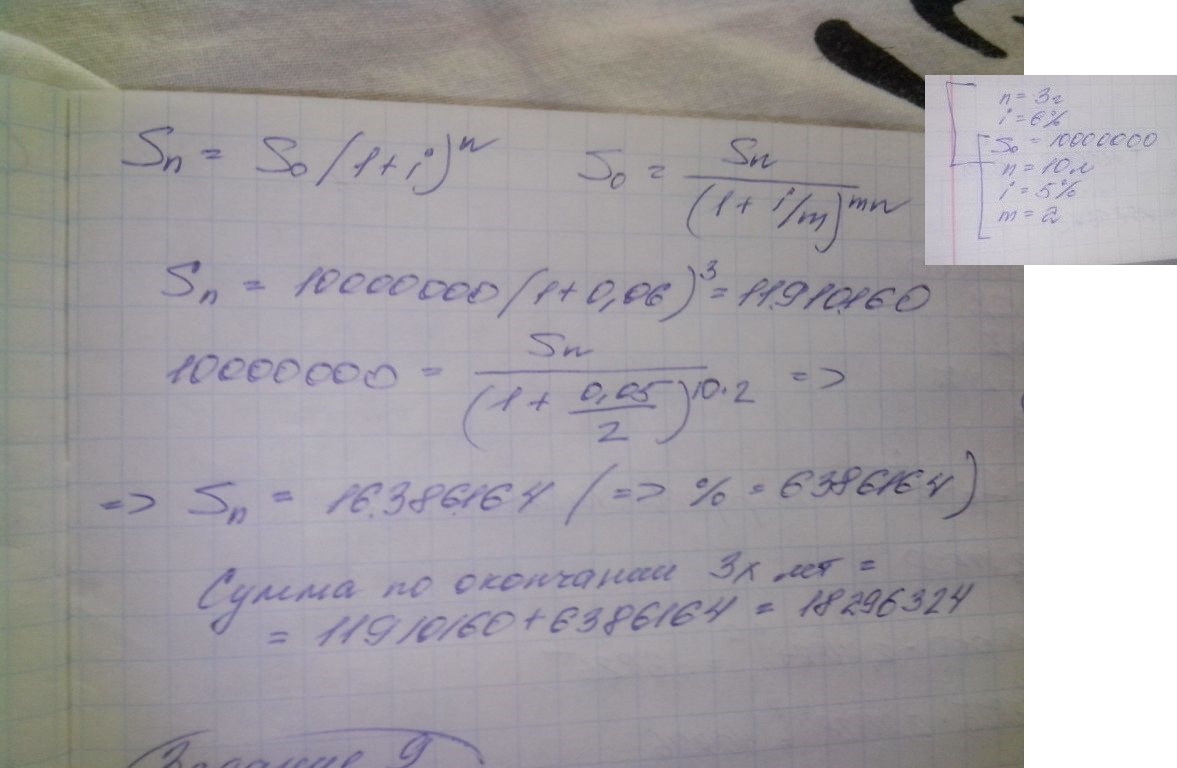 Sn = S0 (1+i)^n    S0 = Sn / (1 + i/m)^mn
n = 3г
i = 6%
S0 = 10000000
n = 10 л
i = 5%
m = 2
Sn = 10000000 (1+0,06)^3 = 11.910.160
10000000 = Sn / (1 + 0,05/2)^10·2 =>
=> Sn = 16.386.164 (=> % = 6386164)
Сумма по окончании 3х лет =
= 11910160 + 6386164 = 18296324
Задание 9